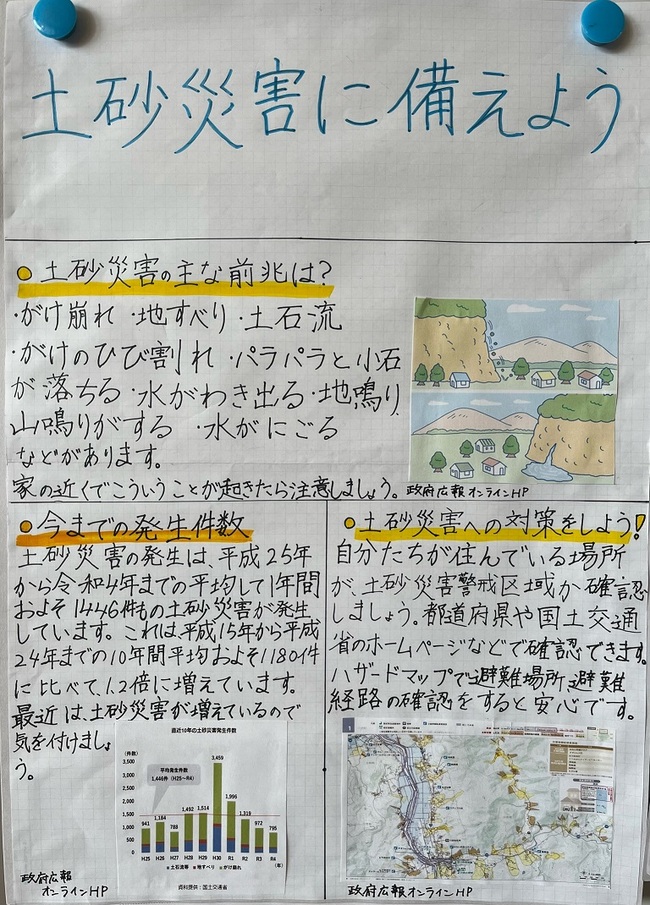 土砂災害に備えよう
土砂災害の主な前兆は?
・がけ崩れ ・地すべり ・土石流
・がけのひび割れ ・パラパラと小石
が落ちる ・水がわき出る ・地鳴り
山鳴りがする ・水がにごる
などがあります。
家の近くでこういうことが起きたら注意しましょう。
政府広報オンラインHP
今までの発生件数
土砂災害の発生は、平成25年
から令和4年までの平均して1年間
およそ1446件もの土砂災害が発生
しています。これは、平成15年から平成
24年までの10年間平均およそ1180件
に比べて、1.2倍に増えています。
最近は、土砂災害が増えているので
気を付けましょ
う。
直近10年の土砂災害発生件数
(件数)
3,500
3,000
2,500
2,000
1,500
1,000
500
0
平均発生件数
1,446件(H25~R4)
941
1,184
788
1,492
1,514
3,459
1,996
1,319
972
795
H25 H26 H27 H28 H29 H30 R1 R2 R3 R4 (年)
■土石流等 ■地すべり ■がけ崩れ
資料提供:国土交通省
政府広報
オンラインHP
土砂災害への対策をしよう!
自分たちが住んでいる場所
が、土砂災害警戒区域か確認
しましょう。都道府県や国土交通
省のホームページなどで確認できます。
ハザードマップで避難場所、避難
経路の確認をすると安心です。
政府広報オンラインHP